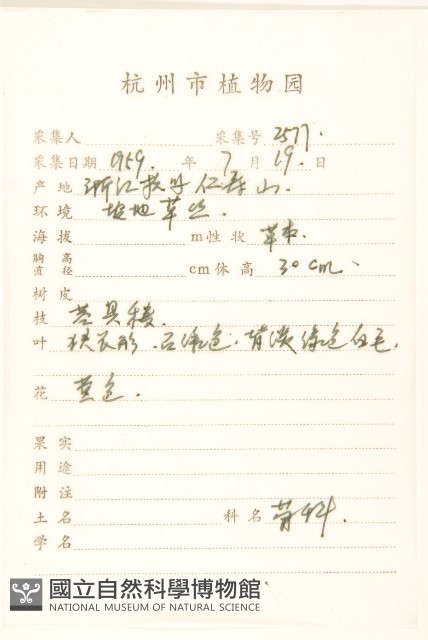 杭州市植物园
采集人 采集号 2577.
采集日期 1959. 年 7 月 19. 日
产地 浙江杭州仁寿山.
环境 坡地草丛.
海拔 m性状 草本.
胸高直径 cm体高 30 cm.
树皮
枝 茎具棱.
叶 披衣形.
花 黄色.
果实
用途
附注
土名 科名 菊科.
学名
國立自然科學博物館
NATIONAL MUSEUM OF NATURAL SCIENCE